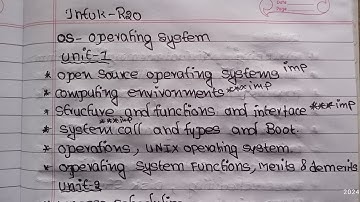 Jntuk-R20
OS- operating system
unit-1
* open source operating systems imp
* computing environments ***imp
* structure and functions and interface ***imp
* system call and types and Boot.
* operations, UNIX operating system
* operating system Functions, merits & demerits
unit-2
2024